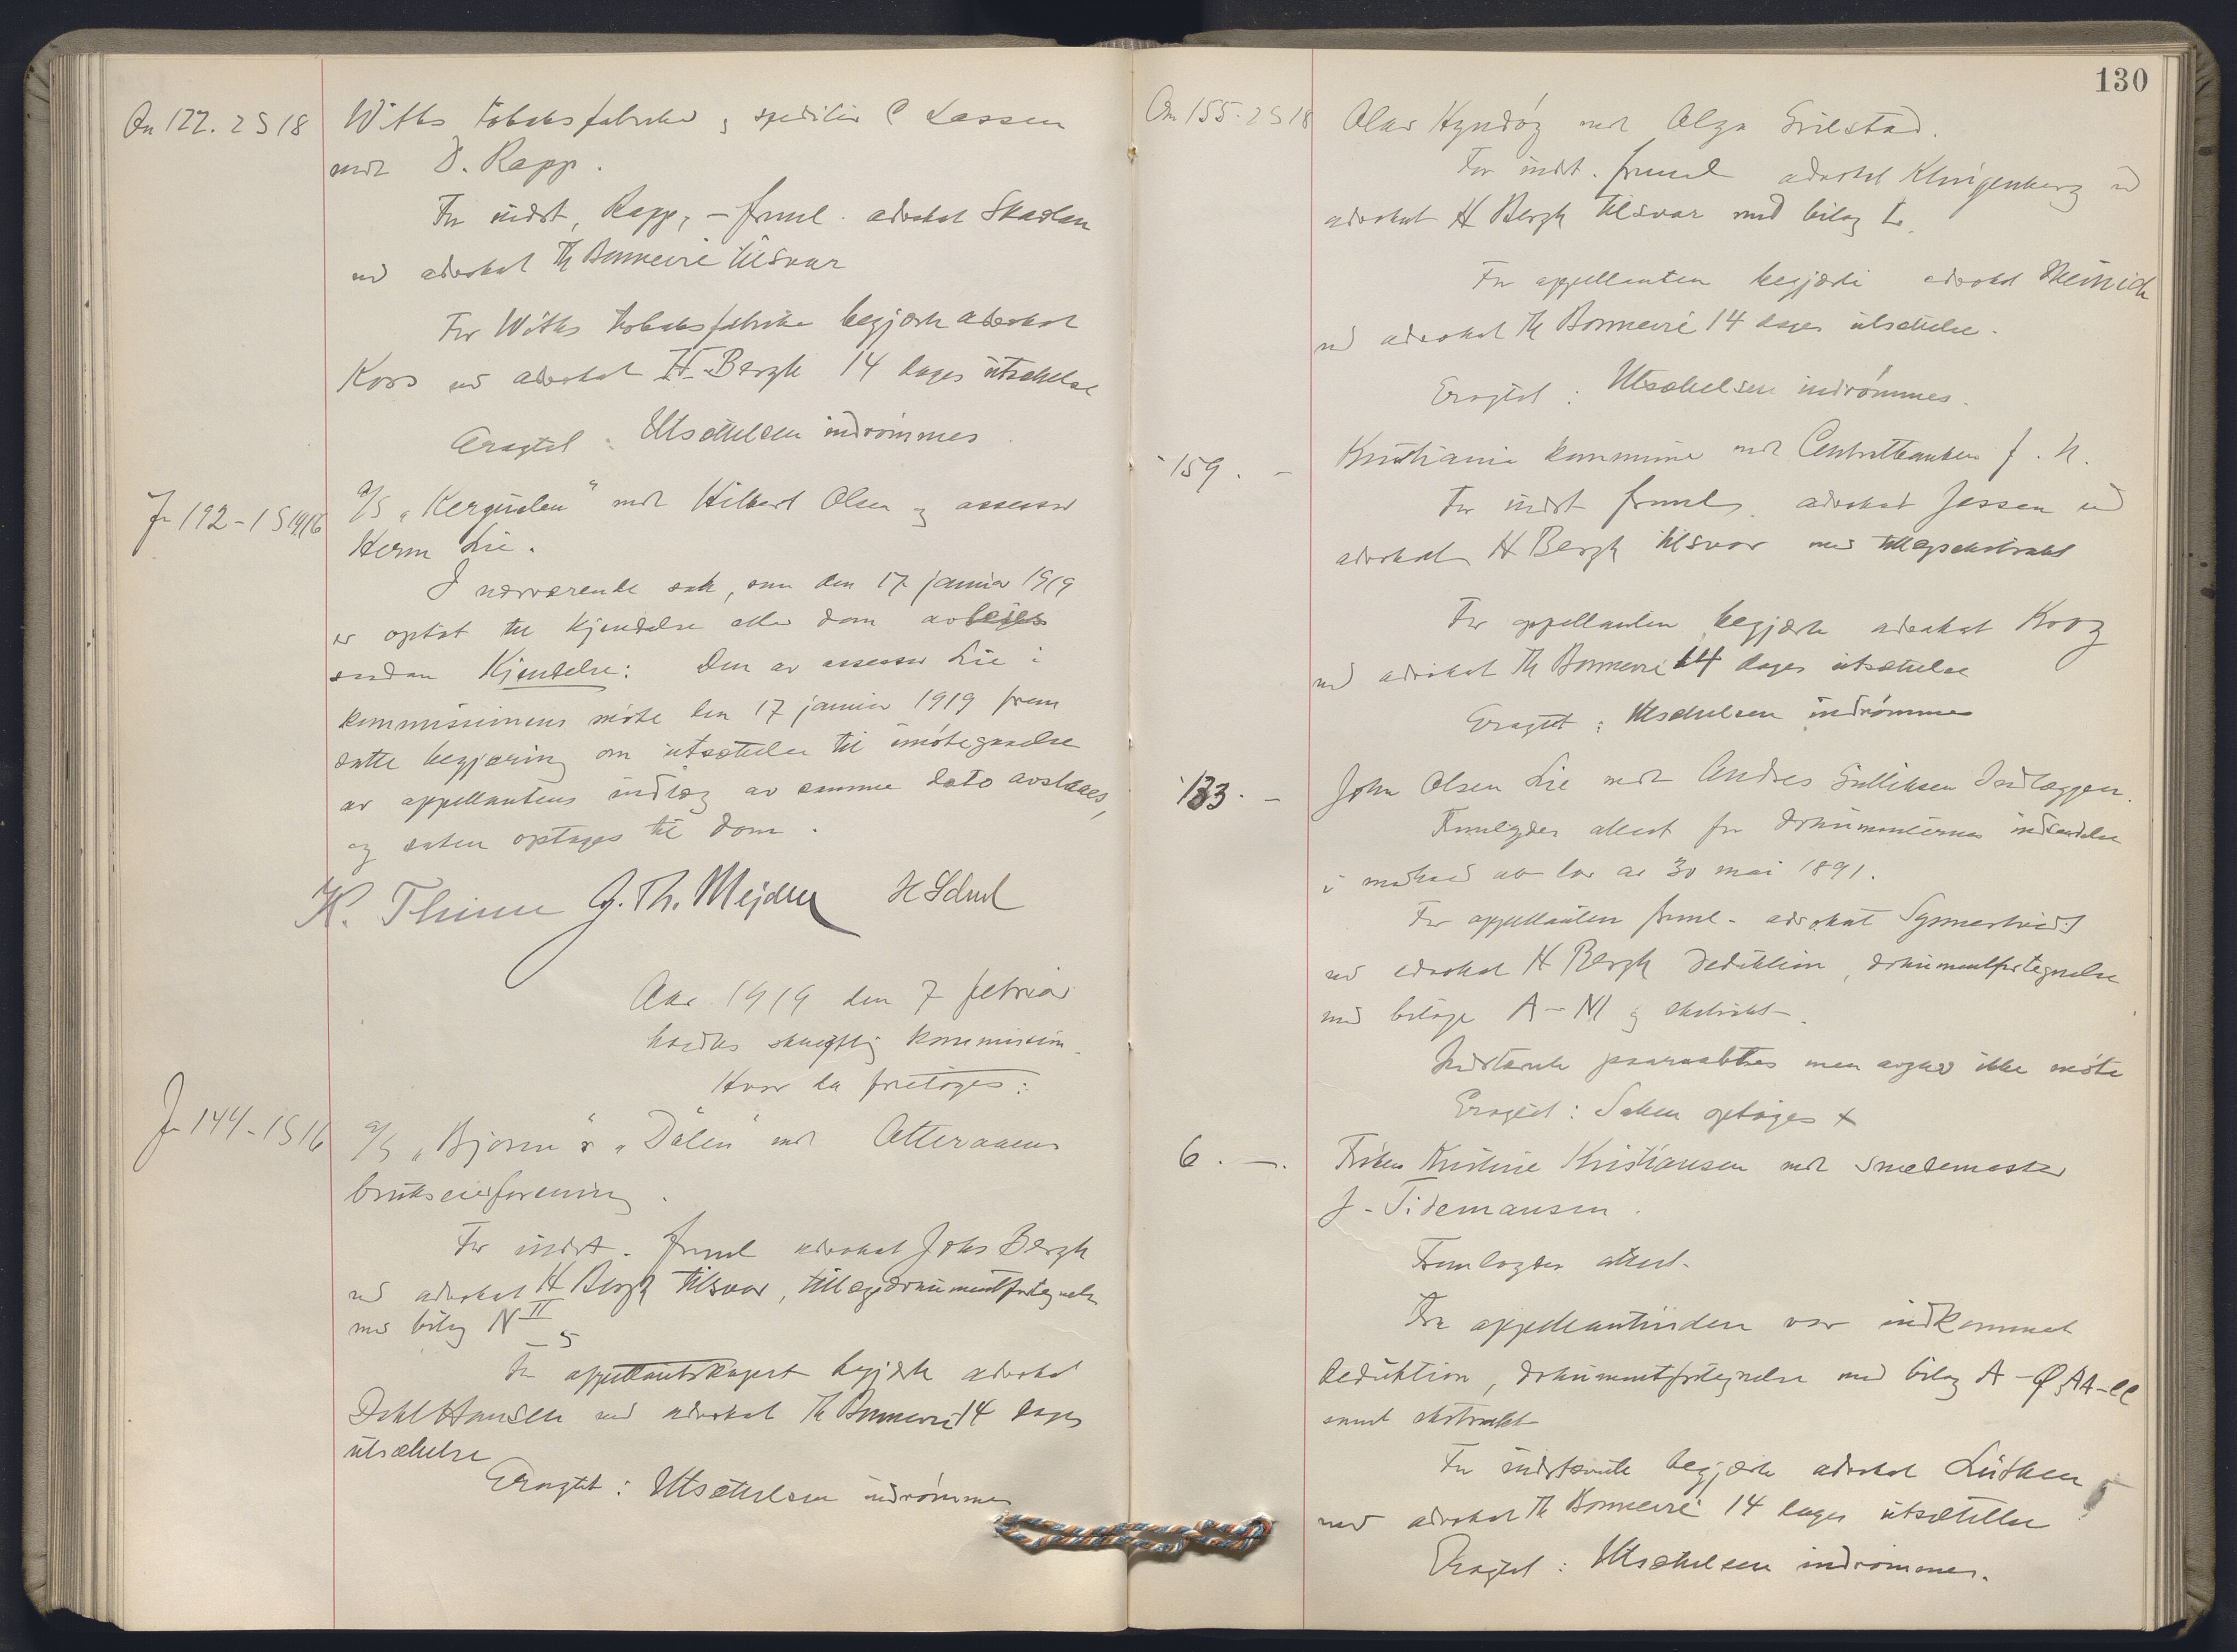 An 122. 2 S 18
Withs tobaksfabriker og speditør C Lassen
mot D. Rapp.
For indst, Rapp, - freml. advokat Skarlan
ved advokat Th Bonnevie tilsvar
For Withs tobaksfabriker begjærte advokat
Koss ved advokat H. Bergh 14 dages utsættelse
Eragtet: Utsættelsen indrømmes.
Jr 192 - 1 S 1916
A/S "Kerguelen" mot Hilbert Olsen og assessor
Herm Lie.
I nærværende sak, som den 17 januar 1919
er optat til kjendelse eller dom avsiges
saadan Kjendelse: Den av assessor Lie i
kommissionens møte den 17 januar 1919 frem
satte begjæring om utsættelse til imøtegaaelse
av appellantens indlæg av samme dato avslaaes,
og saken optages til dom.
K. Thinn G. Th. Mejdell
Aar 1919 den 7 februar
holdtes skriftlig kommission.
Hvor da foretoges:
Jr 144 - 1 S 16
A/S "Bjørn" & "Dølen" mot Atteraaens
brukseierforening.
For indst. freml advokat Johs Bergh
ved advokat H Bergh tilsvar, tillægsdokumentfortegnelse
med bilag N II - 5
For appellantskapet begjærte advokat
Dahl Hansen ved advokat Th Bonnevie 14 dages
utsættelse
Eragtet: Utsættelsen indrømmes
130
An 155. 2 S 18
Olav mot Olga
For indst. freml advokat Klingenberg ved
advokat H Bergh tilsvar med bilag L.
For appellanten begjærte advokat Heinrich
ved advokat Th Bonnevie 14 dages utsættelse.
Eragtet: Utsættelsen indrømmes.
"159. -
Kristiania kommune mot Centralbanken f. N.
For indst freml. advokat Jessen ved
advokat H Bergh tilsvar med tillægsekstrakt
For appellanten begjærte advokat
ved advokat Th Bonnevie 14 dages utsættelse
Eragtet: Utsættelsen indrømmes
"133. -
John Olsen Lie mot Andres Gulliksen
Fremlagdes attest for dokumenternes indsendelse
i medhold av lov av 30 mai 1891.
For appellanten freml. advokat Synnestvedt
ved advokat H Bergh deduktion, dokumentfortegnelse
med bilage A - N og ekstrakt.
Indstævnte paaraabtes men avgav ikke møte
Eragtet: Saken optages x
6. -.
Frøken Kristine Kristiansen mot smedemester
J. Tidemansen.
Fremlagdes attest.
Fra appellantinden var indkommet
deduktion, dokumentfortegnelse med bilag A - Ø, AA - CC
samt ekstrakt
For indstævnte begjærte advokat Lütken
ved advokat Th Bonnevie 14 dages utsættelse
Eragtet: Utsættelsen indrømmes.